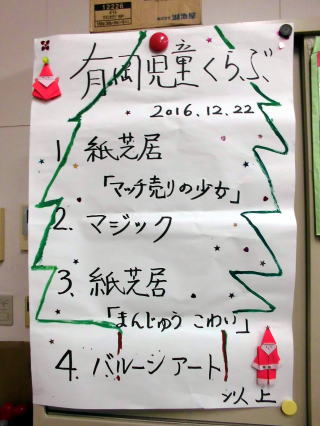 有岡児童くらぶ
2016.12.22
1 紙芝居
「マッチ売りの少女」
2. マジック
3. 紙芝居
「まんじゅうこわい」
4. バルーンアート
以上
12228